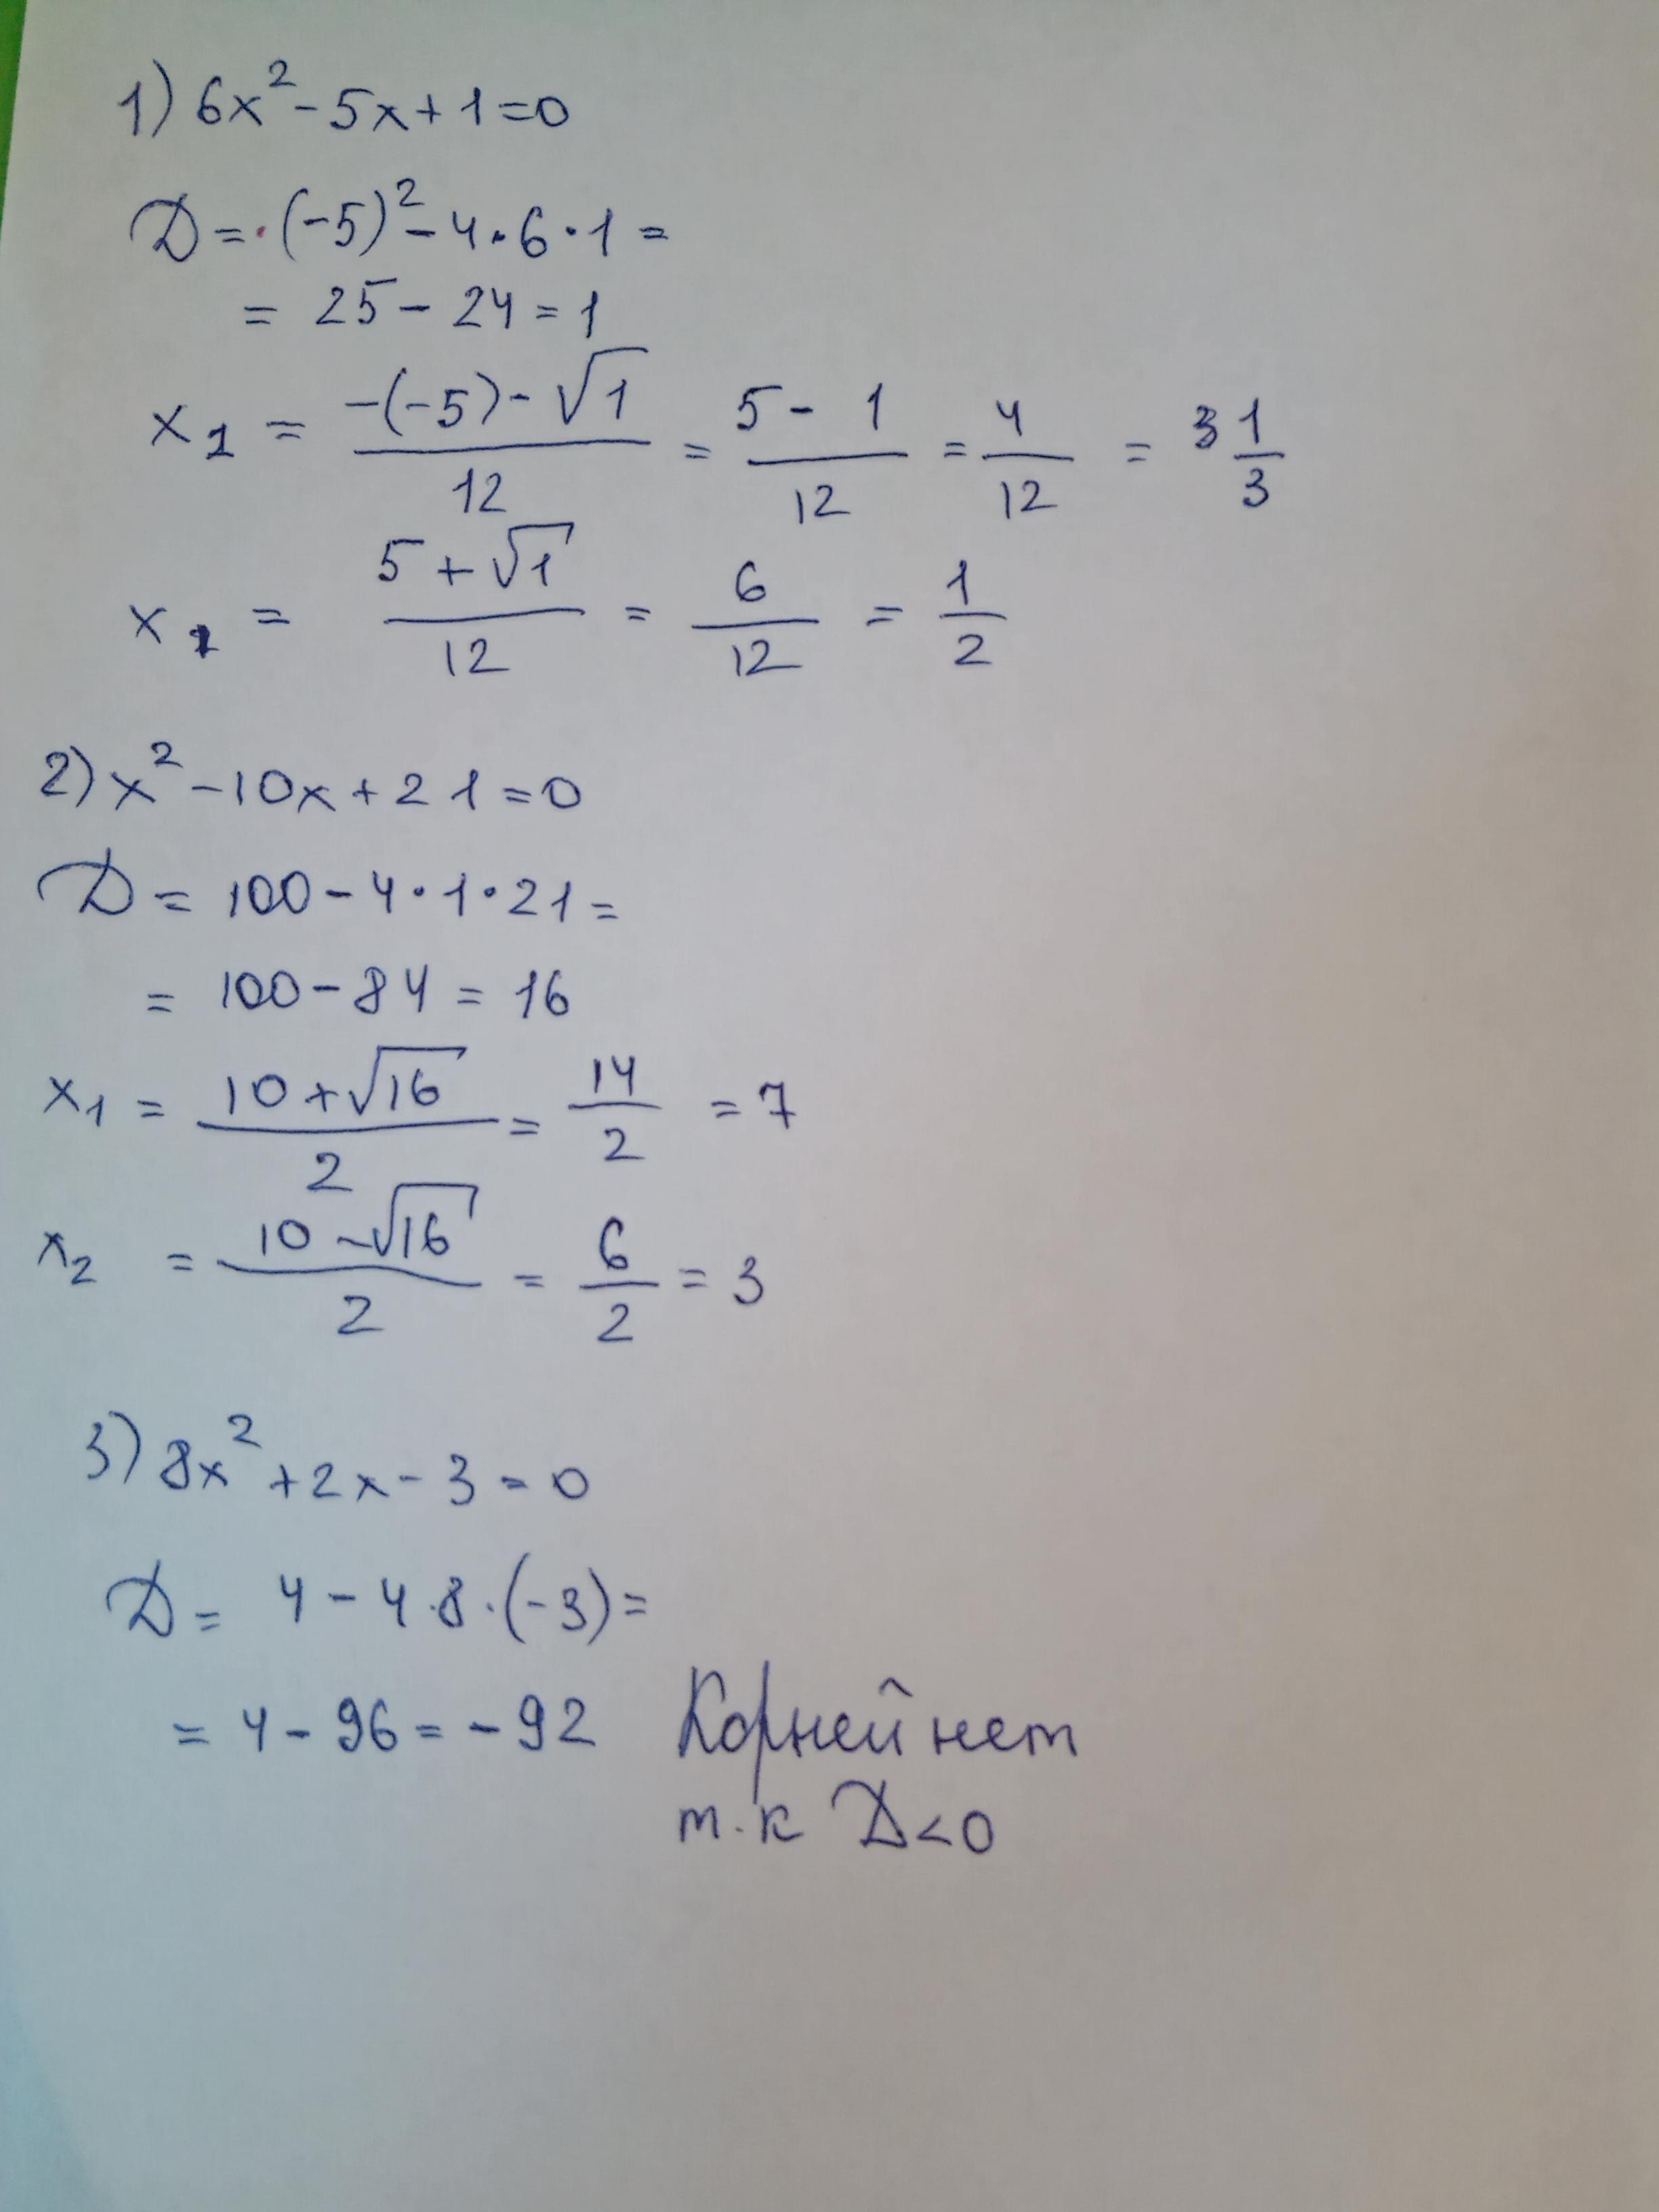 1) 6x² - 5x + 1 = 0
D = · (-5)² - 4 · 6 · 1 =
= 25 - 24 = 1
x₁ = (-(-5) - √1)/12 = (5 - 1)/12 = 4/12 = 3 1/3
x₁ = (5 + √1)/12 = 6/12 = 1/2
2) x² - 10x + 21 = 0
D = 100 - 4 · 1 · 21 =
= 100 - 84 = 16
x₁ = (10 + √16)/2 = 14/2 = 7
x₂ = (10 - √16)/2 = 6/2 = 3
3) 8x² + 2x - 3 = 0
D = 4 - 4 · 8 · (-3) =
= 4 - 96 = - 92 Корней нет
т.к D < 0